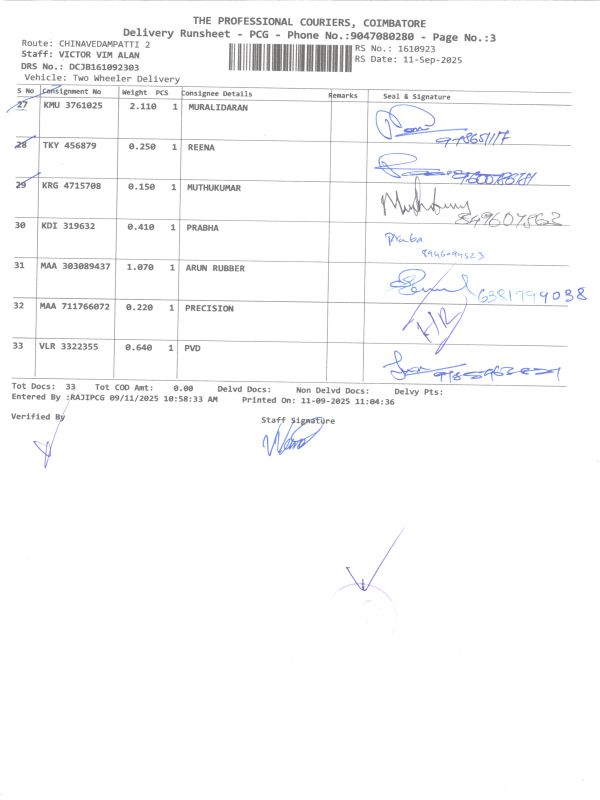 THE PROFESSIONAL COURIERS, COIMBATORE
Delivery Runsheet - PCG - Phone No.:9047080280 - Page No.:3
Route: CHINAVEDAMPATTI 2
RS No.: 1610923
Staff: VICTOR VIM ALAN
RS Date: 11-Sep-2025
DRS No.: DCJB161092303
Vehicle: Two Wheeler Delivery
S No Consignment No Weight PCS Consignee Details Remarks Seal & Signature
27 KMU 3761025 2.110 1 MURALIDARAN
28 TKY 456879 0.250 1 REENA
29 KRG 4715708 0.150 1 MUTHUKUMAR
849607863
30 KDI 319632 0.410 1 PRABHA
Praba
31 MAA 303089437 1.070 1 ARUN RUBBER
6381794038
32 MAA 711766072 0.220 1 PRECISION
33 VLR 3322355 0.640 1 PVD
Tot Docs: 33 Tot COD Amt: 0.00 Delvd Docs: Non Delvd Docs: Delvy Pts:
Entered By :RAJIPCG 09/11/2025 10:58:33 AM Printed On: 11-09-2025 11:04:36
Verified By Staff Signature